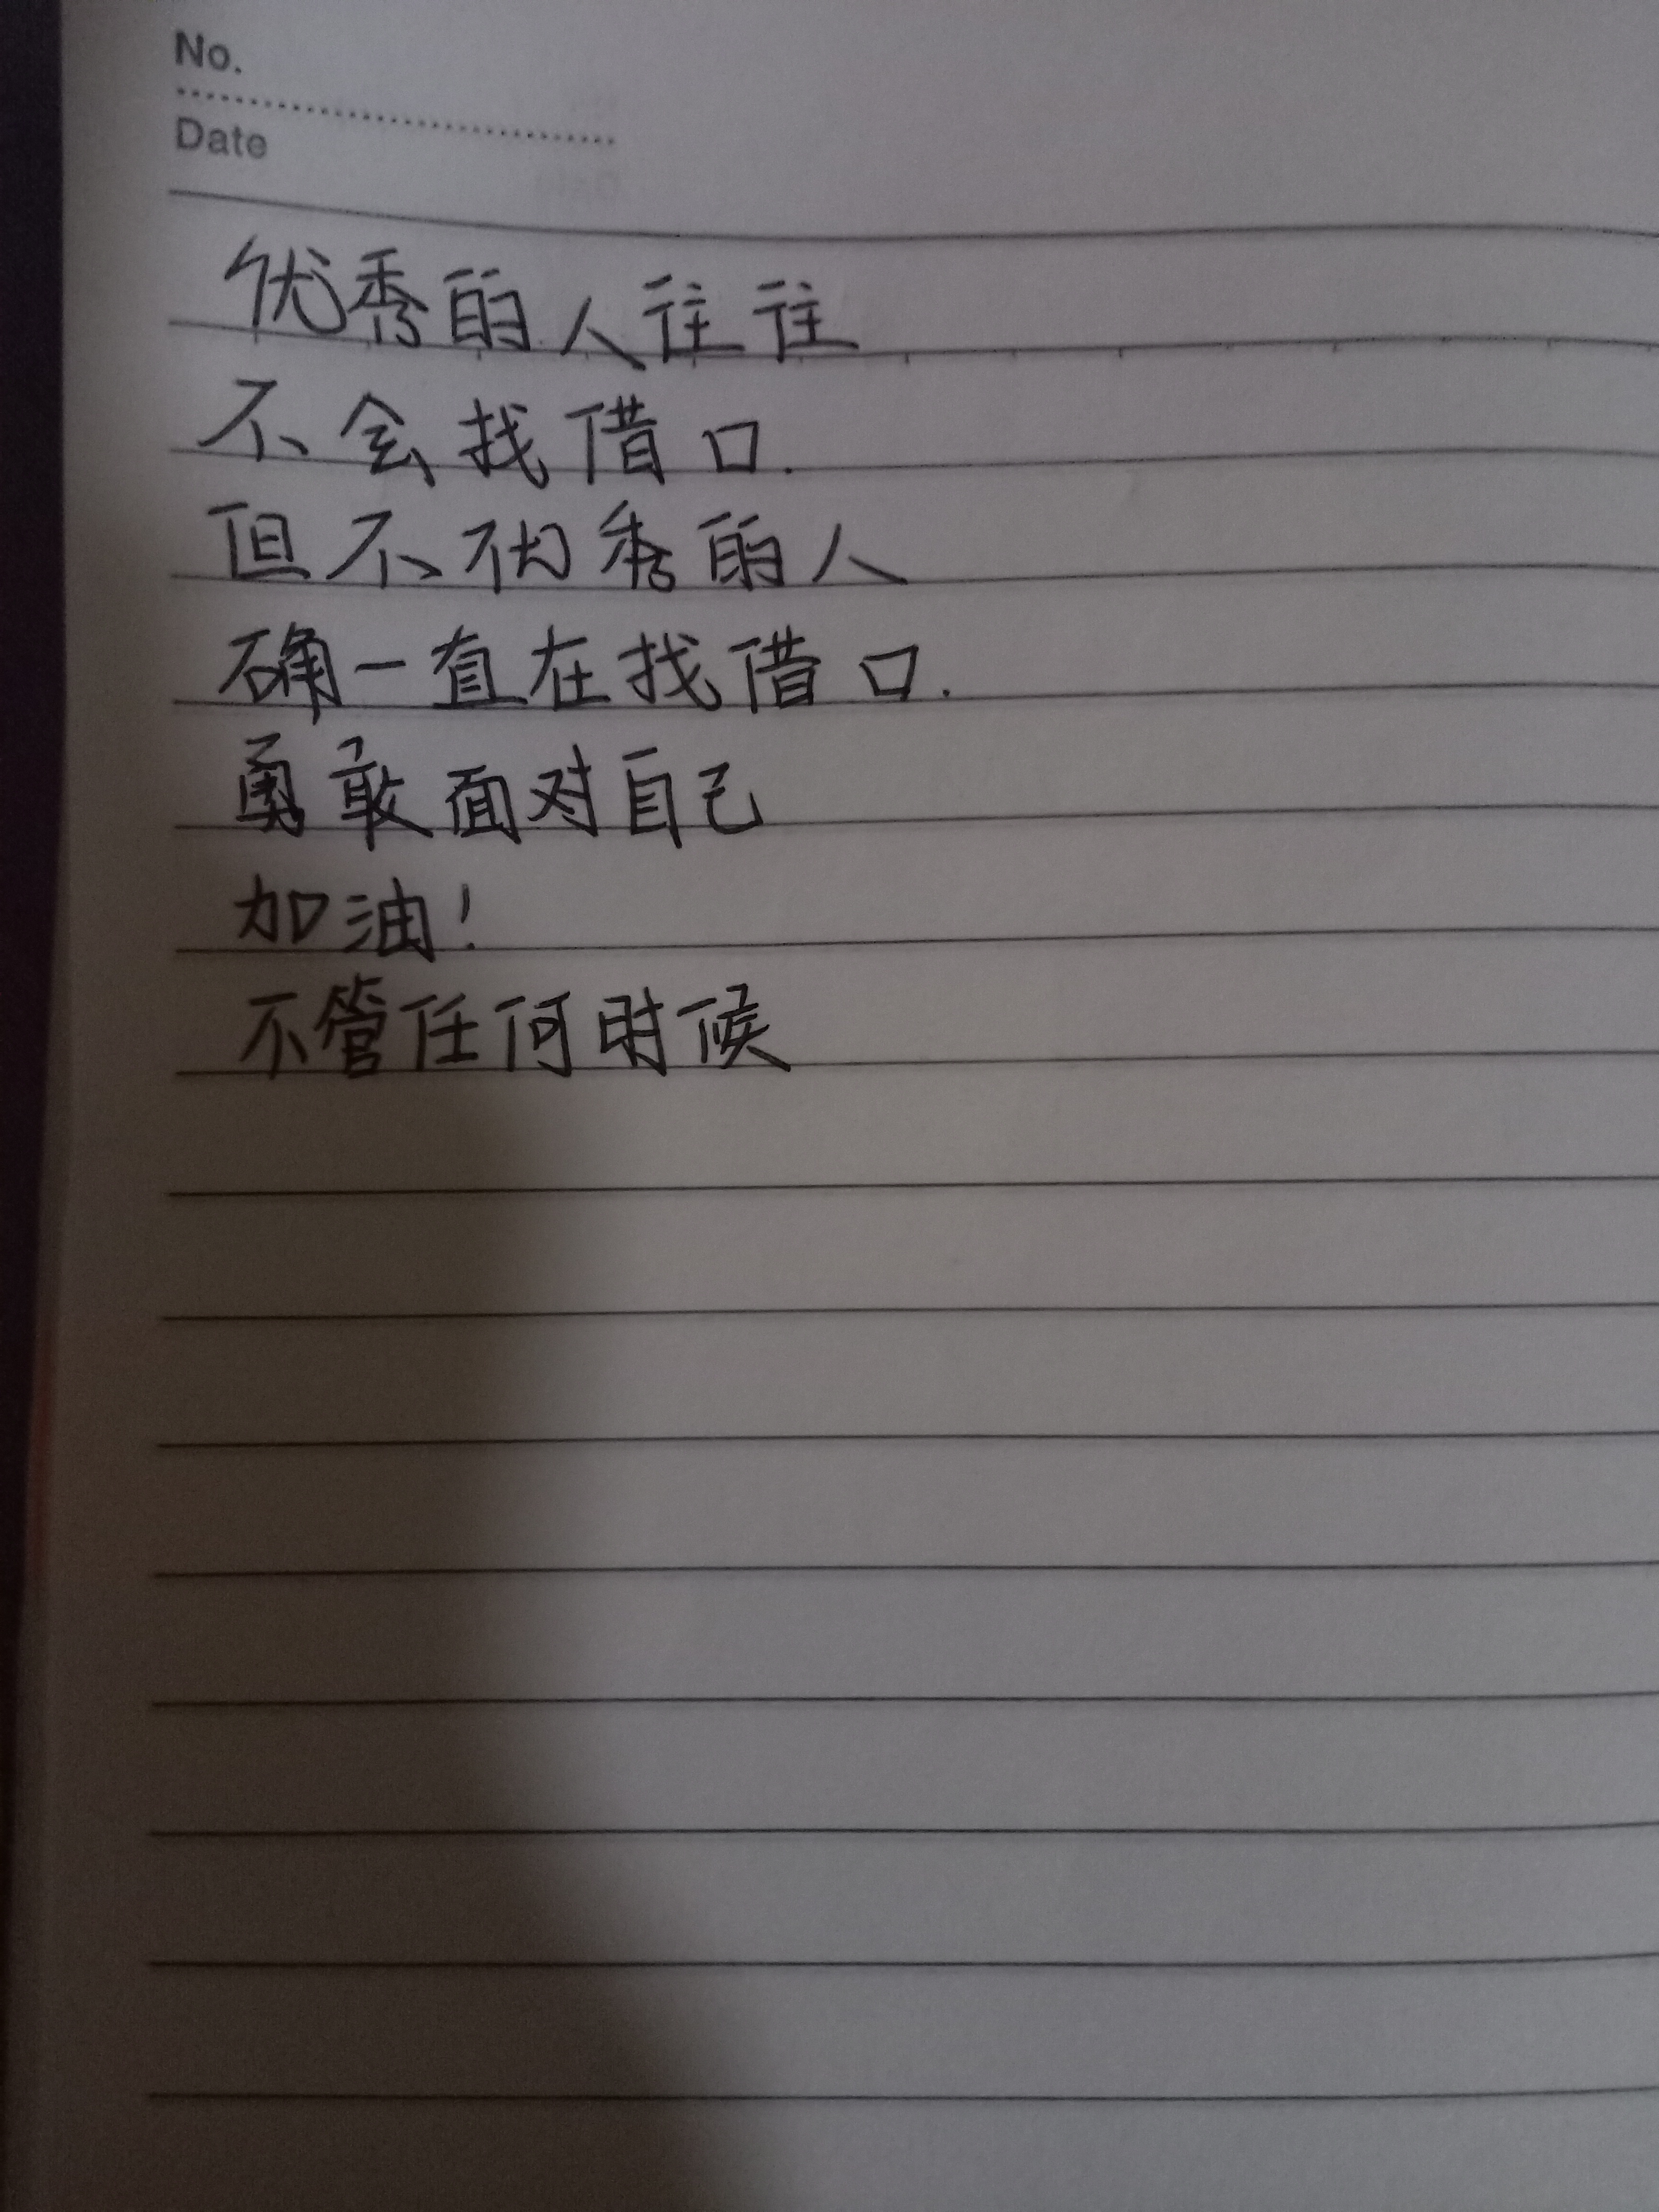 No.
Date
优秀的人往往
不会找借口.
但不优秀的人
确一直在找借口.
勇敢面对自己
加油!
不管任何时候